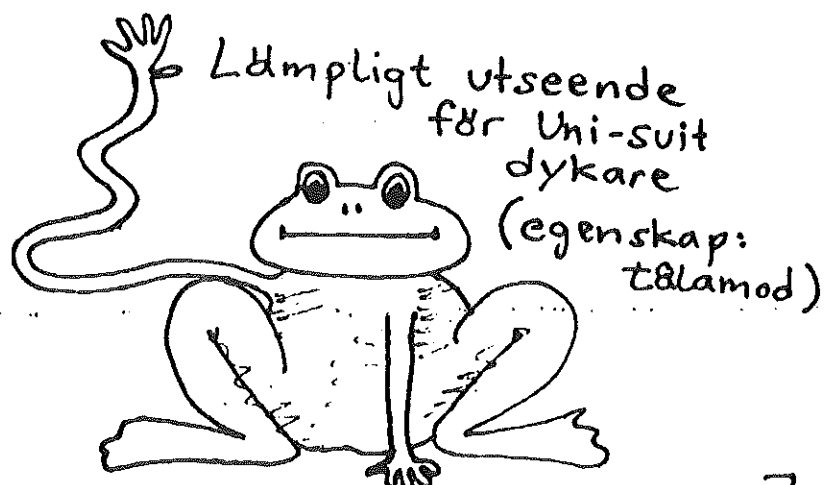 Lämpligt utseende
för Uni-suit
dykare
(egenskap:
tålamod)